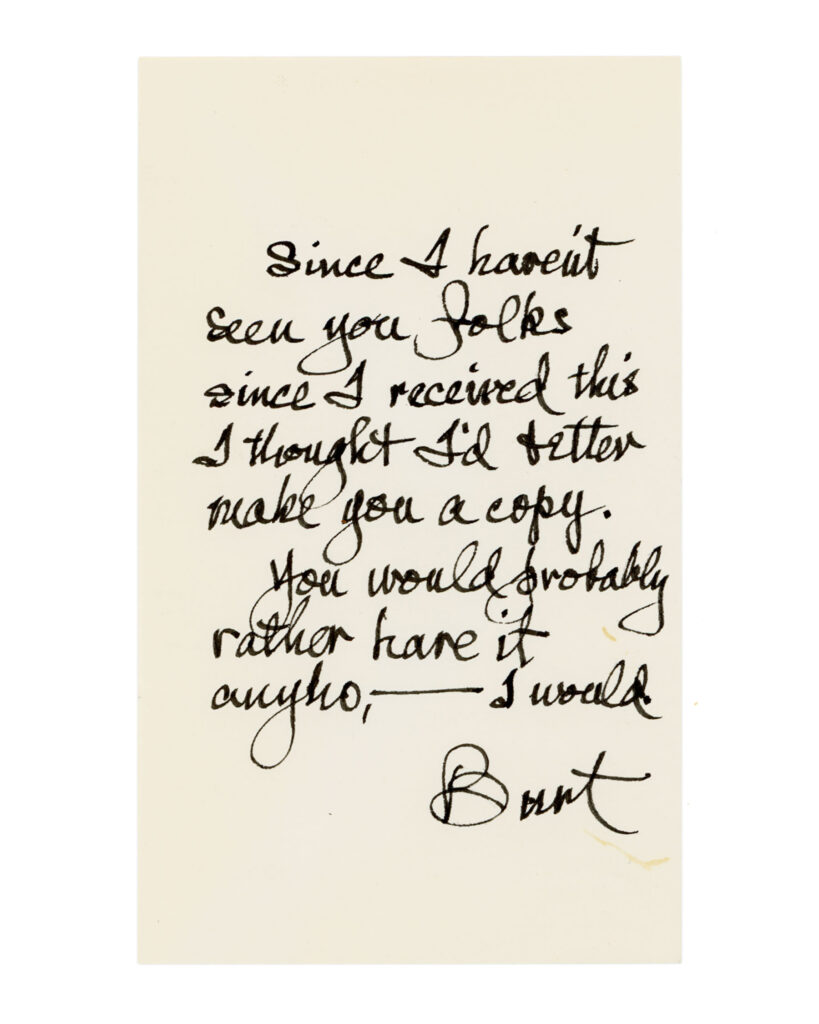 Since I haven't
seen you folks
since I received this
I thought I'd better
make you a copy.
You would probably
rather have it
anyho, — I would.
Burt